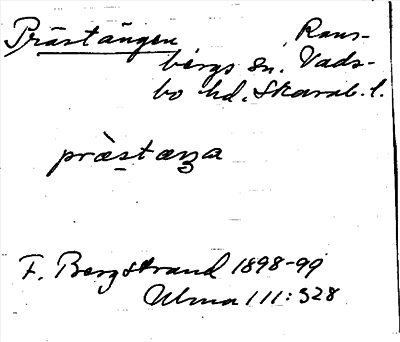 Prästängen Rans-
bergs sn. Vads-
bo hd. Skarab. l.
præ̀stæŋa
F. Bergstrand 1898-99
Ulma 111:328